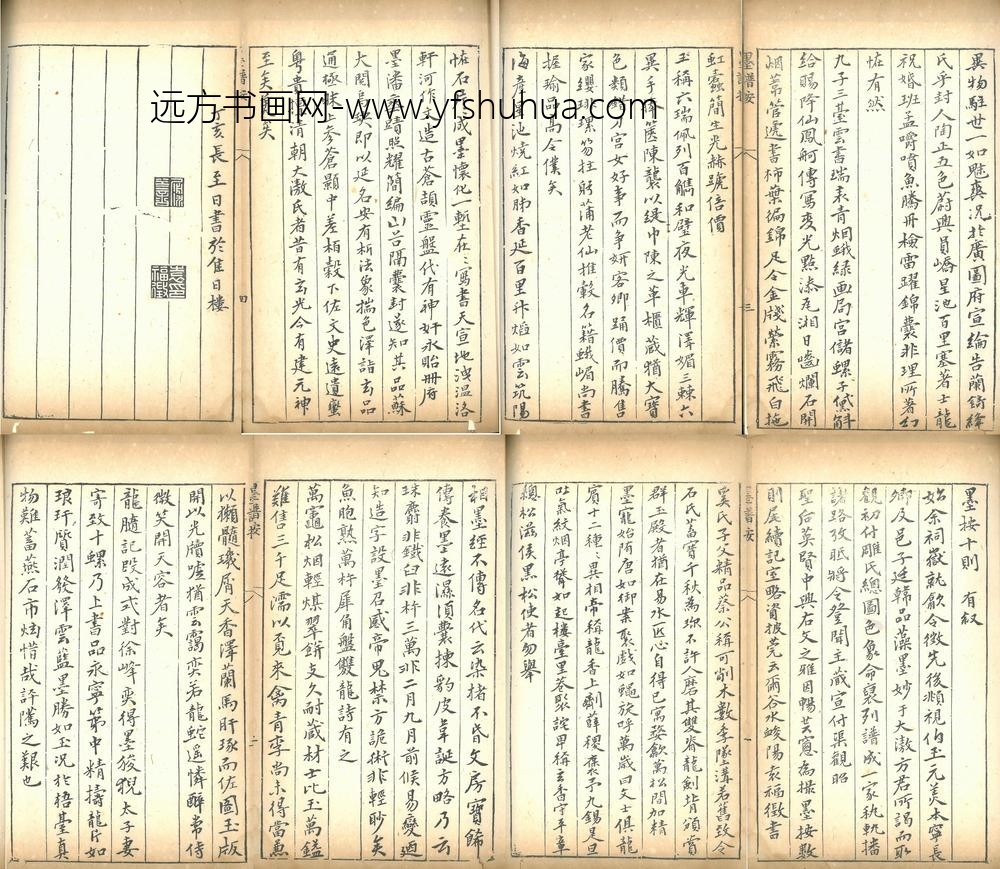 墨按十則 有敘
始余祠嶽軌歙令徵先後頫視伯玉元美本寧長
卿及邑子廷韓品藻墨妙于大滶方君所謁而取
觀初付雕氏總圖色象命裒列譜成一家執軌播
諸路攷眡將令登聞主藏宣付渠觀昭
聖后英賢中興右文之雅因暢其寃為撮墨按數
則尾續記室略資披莞云爾谷水峻陽袁福徵書
墨譜按
一
奚氏子父精品蔡公稱可削木數季隊溝若舊致令
石氏蓄寶千秋為珎不許人磨其雙脊龍劍背頒賞
群玉殿者猶在易水匠心自得已寓藥歙萬松間加精
墨寵始隋唐如御案聚戲如蠅旋呼萬歲曰文士俱龍
賓十二種種異相帝稱龍香上劑薛稷褒予九錫是旦
吐氣紋烟亭攢如起樓臺里巷聚詫畀稱玄香守年草
總松滋矦黑松使者勿舉
相墨經不傳名代云染楮不昏文房寶飾
傳養墨遠濕須囊揀豹皮韋誕方略乃云
珠麝非鐵臼非杵三萬非二月九月前候易變廼
知造字設墨召感帝鬼禁方詭術非輕眇矣
魚胞熟萬杵犀角盤雙龍詩有之
萬竈松烟輕煤翠餅支久耐歲材士比玉萬鎰
難售三千足濡以覔來禽青李尚未得當惠
墨譜按
二
以獺髓璣屑天香澤蘭馬肝琢而佐圖玉版
開以光牘嘘猶云靄奕若龍蛇遙憐醉常侍
微笑開天容者矣
龍膸記段成式對徐峰奕得墨狻猊太子妻
寄致十螺乃上書品永寧第中精擣龍片如
琅玕質潤發澤雲籃墨勝如玉況於梧臺真
物難蓄燕石市炫惜哉許隲之艱也
異物駐世一如魅與況於廣圖府宣綸告蘭錡絳
氏乎封人陶正五色蔚興員嶠星池百里塞著士龍
祝婚班孟嚼噴魚騰冊檢雷躍錦囊非理所著幻
恠有然
九子三臺雲書瑞表青烟蛾緑画局宮諸螺子黛斛
給賜降仙鳳舸傳寫麥光點漆尾湘日嗑爛石開
烟芾管處書柿葉塥錦足令金牋縈霧飛白拖
墨譜按
三
虹蠹簡生光赫號倍價
玉稱六瑞佩列百觿和璧夜光車輝澤媚三棘六
異手絳篋陳襲以緑巾陳之革櫃藏猶大寶
色類勢刀宮女好事而爭妍客卿踊價而騰售
家纓珠璖笏拄肘蒲老仙推轂名籍蛾嵋尚書
握瑜品高令僕矣
海產池燒紅如肺香延百里抃焰如雲筑陽
恠石咸墨懷化一塹在在寫書天宣地洩溫洛
軒河作文造古蒼頡靈盤代有神奸永貽冊府
墨瀋績照耀簡編山谷隔囊封遂知其品蘇
大関矣即以延名安有析法象揣色澤詣玄品
通極昧上參蒼顥中差栢穀下佐文史遠遺蠻
粵貴清朝大滶氏者昔有玄光今有建元神
至矣矣
四
亥長至日書於隹日樓
袁福徵
远方书画网-www.yfshuhua.com